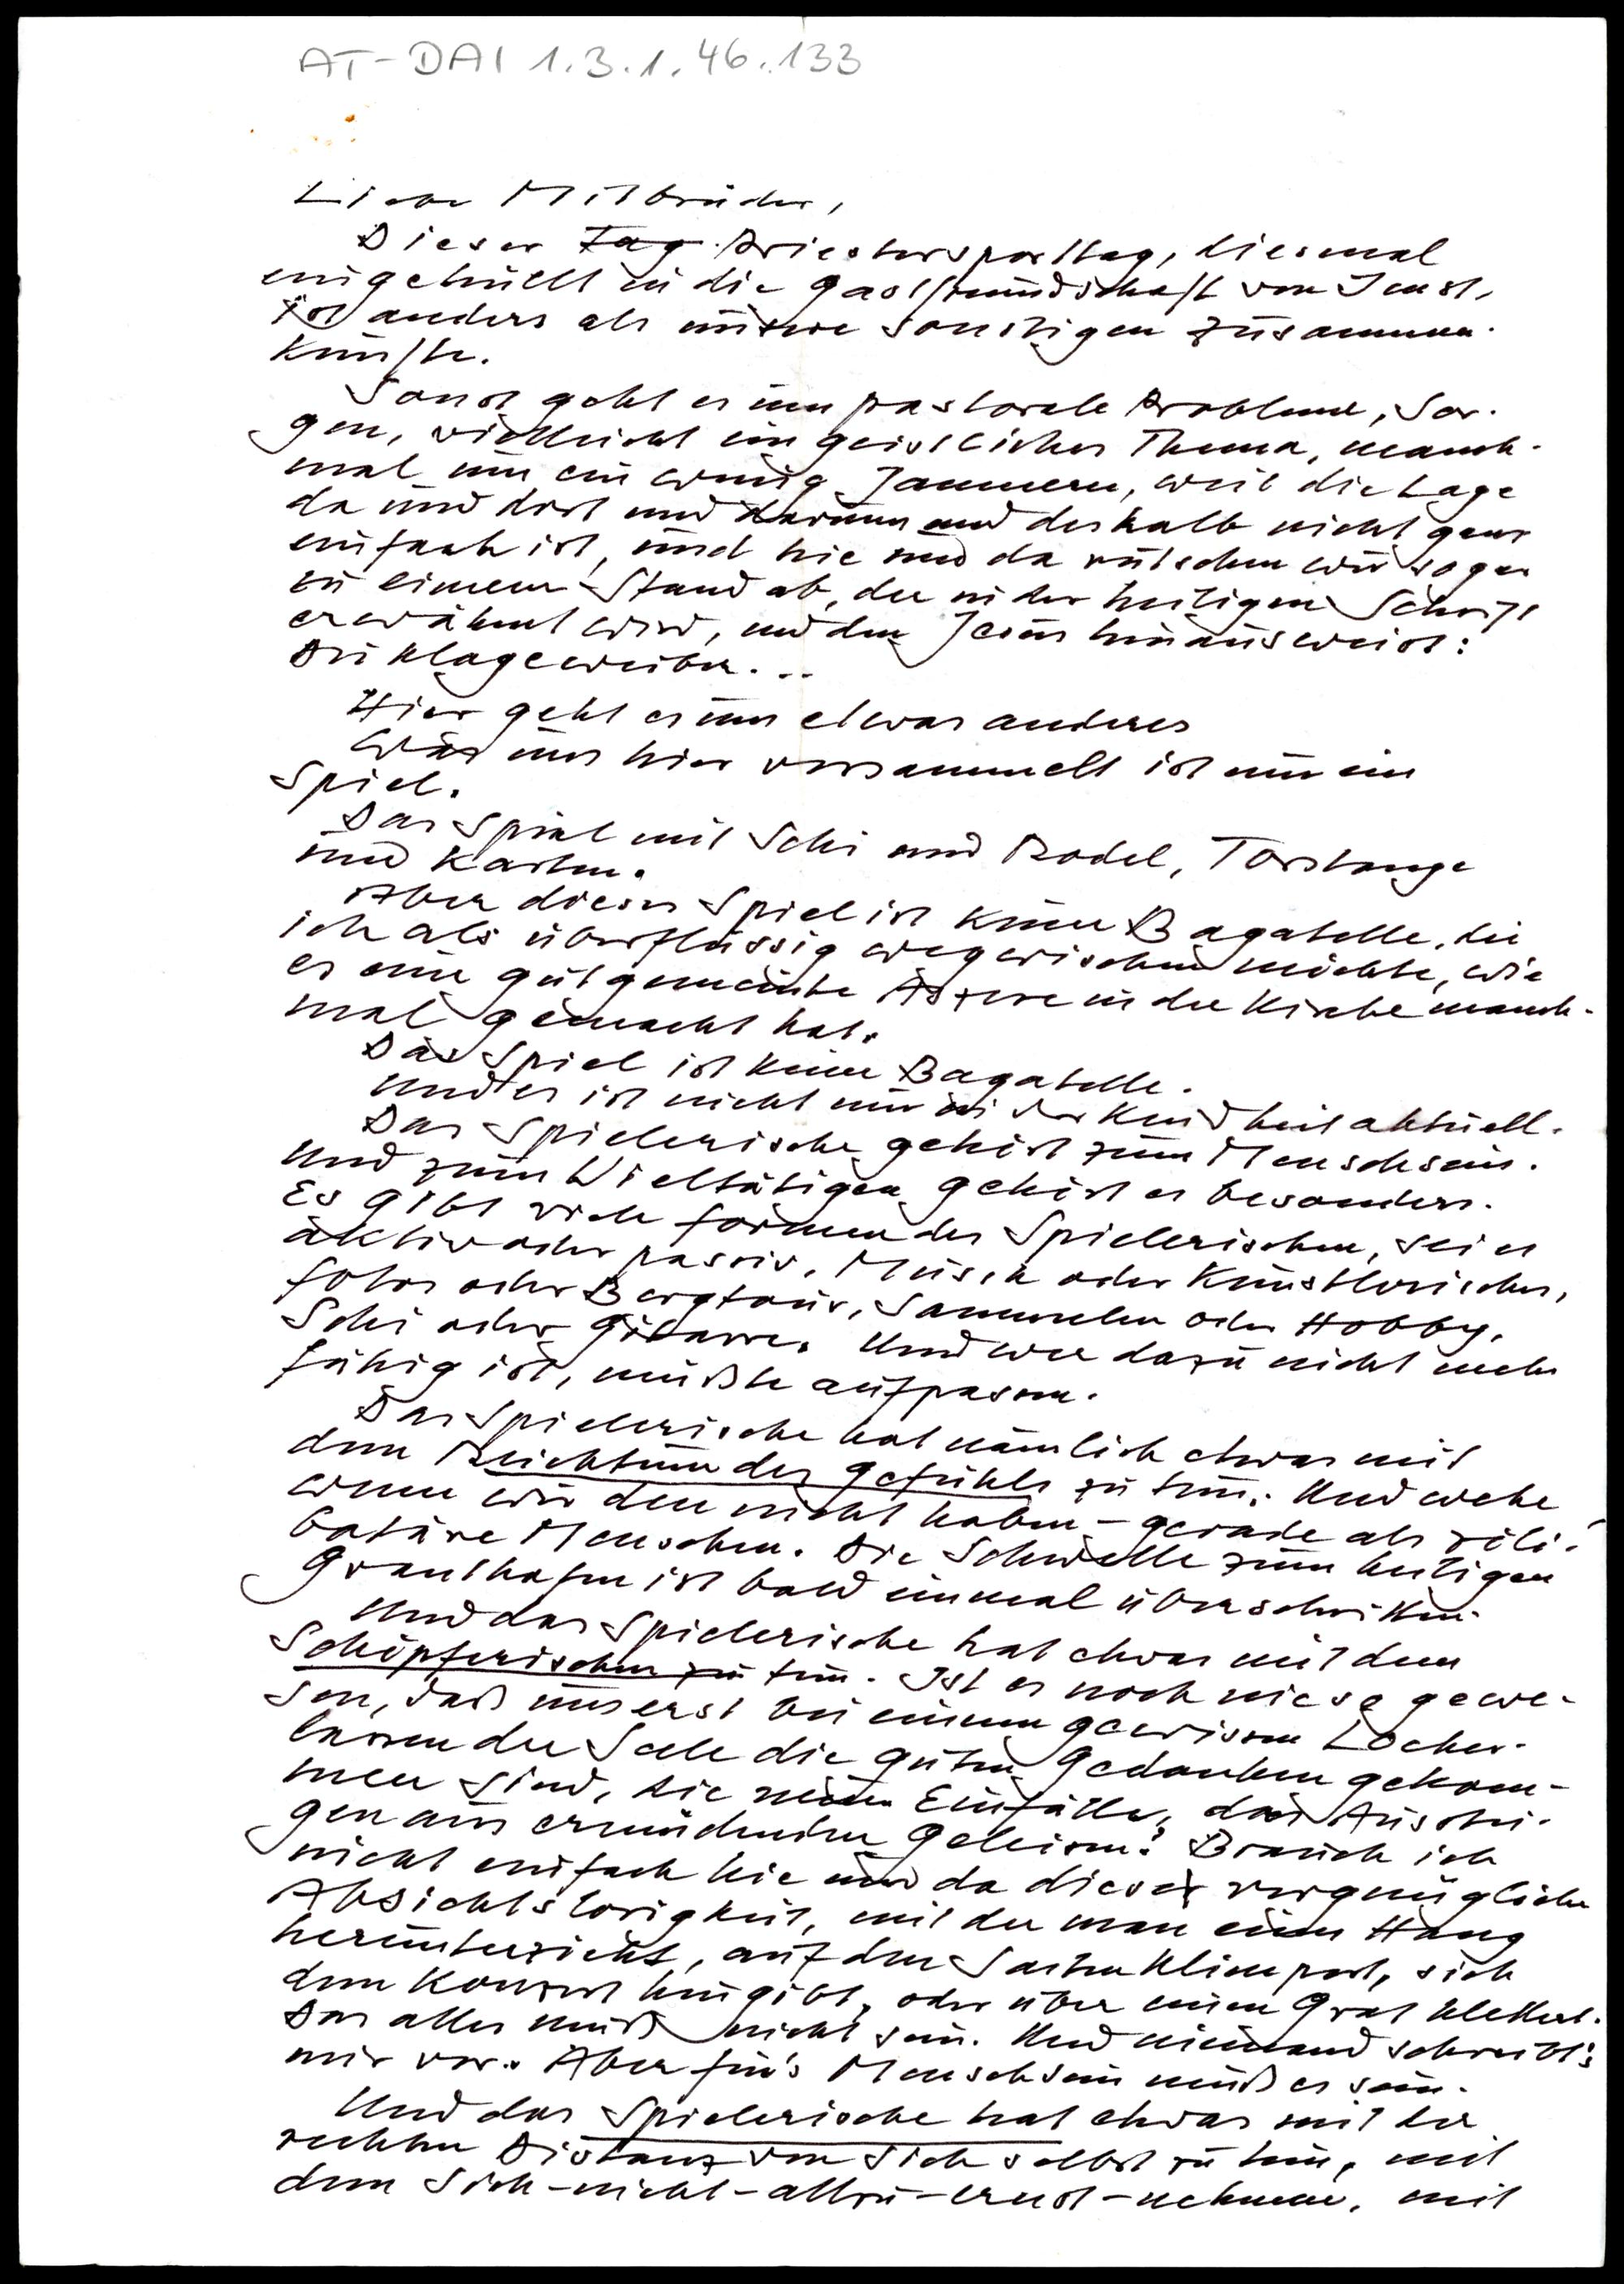 AT-DAI 1.3.1.46.133
Liebe Mitbrüder,
Dieser Tag Priestersporttag, diesmal
eingehüllt in die Gastfreundschaft von Imst,
ist anders als unsere sonstigen Zusammen-
künfte.
Sonst geht es um pastorale Probleme, Sor-
gen, vielleicht ein geistliches Thema, manch-
mal um ein wenig Jammern, weil die Lage
da und dort und darum und deshalb nicht ganz
einfach ist, und hie und da rutschen wir sogar
zu einem Stand ab, der in der heiligen Schrift
erwähnt wird, und den Jesus hinausweist:
Die Klageweiber...
Hier geht es um etwas anderes
Was uns hier versammelt ist nur ein
Spiel.
Das Spiel mit Schi und Rodel, Torstange
und Karten.
Aber dieses Spiel ist keine Bagatelle, die
ich als überflüssig wegwischen möchte, wie
es eine gutgemeinte Aszese in der Kirche manch-
mal gemacht hat.
Das Spiel ist keine Bagatelle.
Und es ist nicht nur in der Kindheit aktuell.
Das Spielerische gehört zum Menschsein.
Und zum Vieltätigen gehört es besonders.
Es gibt viele Formen des Spielerischen, sei es
aktiv oder passiv, Musik oder Künstlerisches,
Foto oder Bergtour, Sammeln oder Hobby,
Schi oder Gitarre. Und wer dazu nicht mehr
fähig ist, müßte aufpassen.
Das Spielerische hat nämlich etwas mit
dem Reichtum des Gefühls zu tun. Und wehe
wenn wir den nicht haben - gerade als zöli-
batäre Menschen. Die Schwelle zum heiligen
Granthafen ist bald einmal überschritten.
Und das Spielerische hat etwas mit dem
Schöpferischen zu tun. Ist es noch nie so gewe-
sen, daß uns erst bei einem gewissen Locker-
lassen der Seele die guten Gedanken gekom-
men sind, die neuen Einfälle, das Ausstei-
gen aus ermüdenden Geleisen? Brauch ich
nicht einfach hie und da diese vergnügliche
Absichtslosigkeit, mit der man einen Hang
herunterzieht, auf den Saiten klimpert, sich
dem Konzert hingibt, oder über einen Grat klettert.
Das alles muß nicht sein. Und niemand schreibt's
mir vor. Aber für's Menschsein muß es sein.
Und das Spielerische hat etwas mit der
rechten Distanz von sich selbst zu tun, mit
dem Sich-nicht-allzu-ernst-nehmen, mit